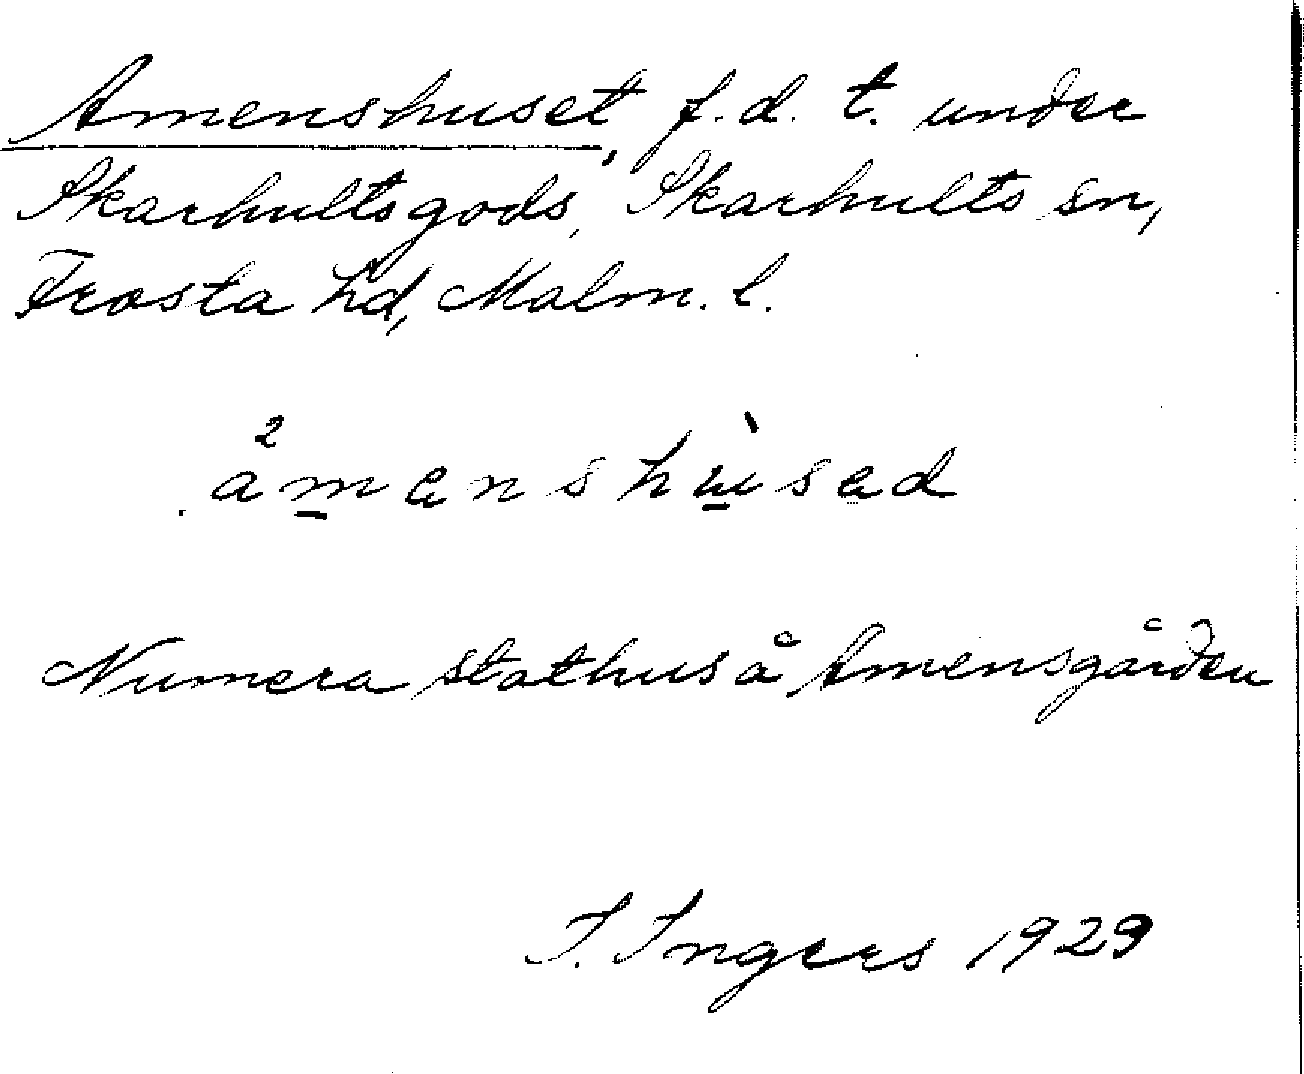 Amenshuset, f.d. t. under
Skarhultsgods, Skarhults sn,
Frosta hd, Malm. l.
2
åmenshùsed
Numera stathus å Amensgården
I. Ingers 1929